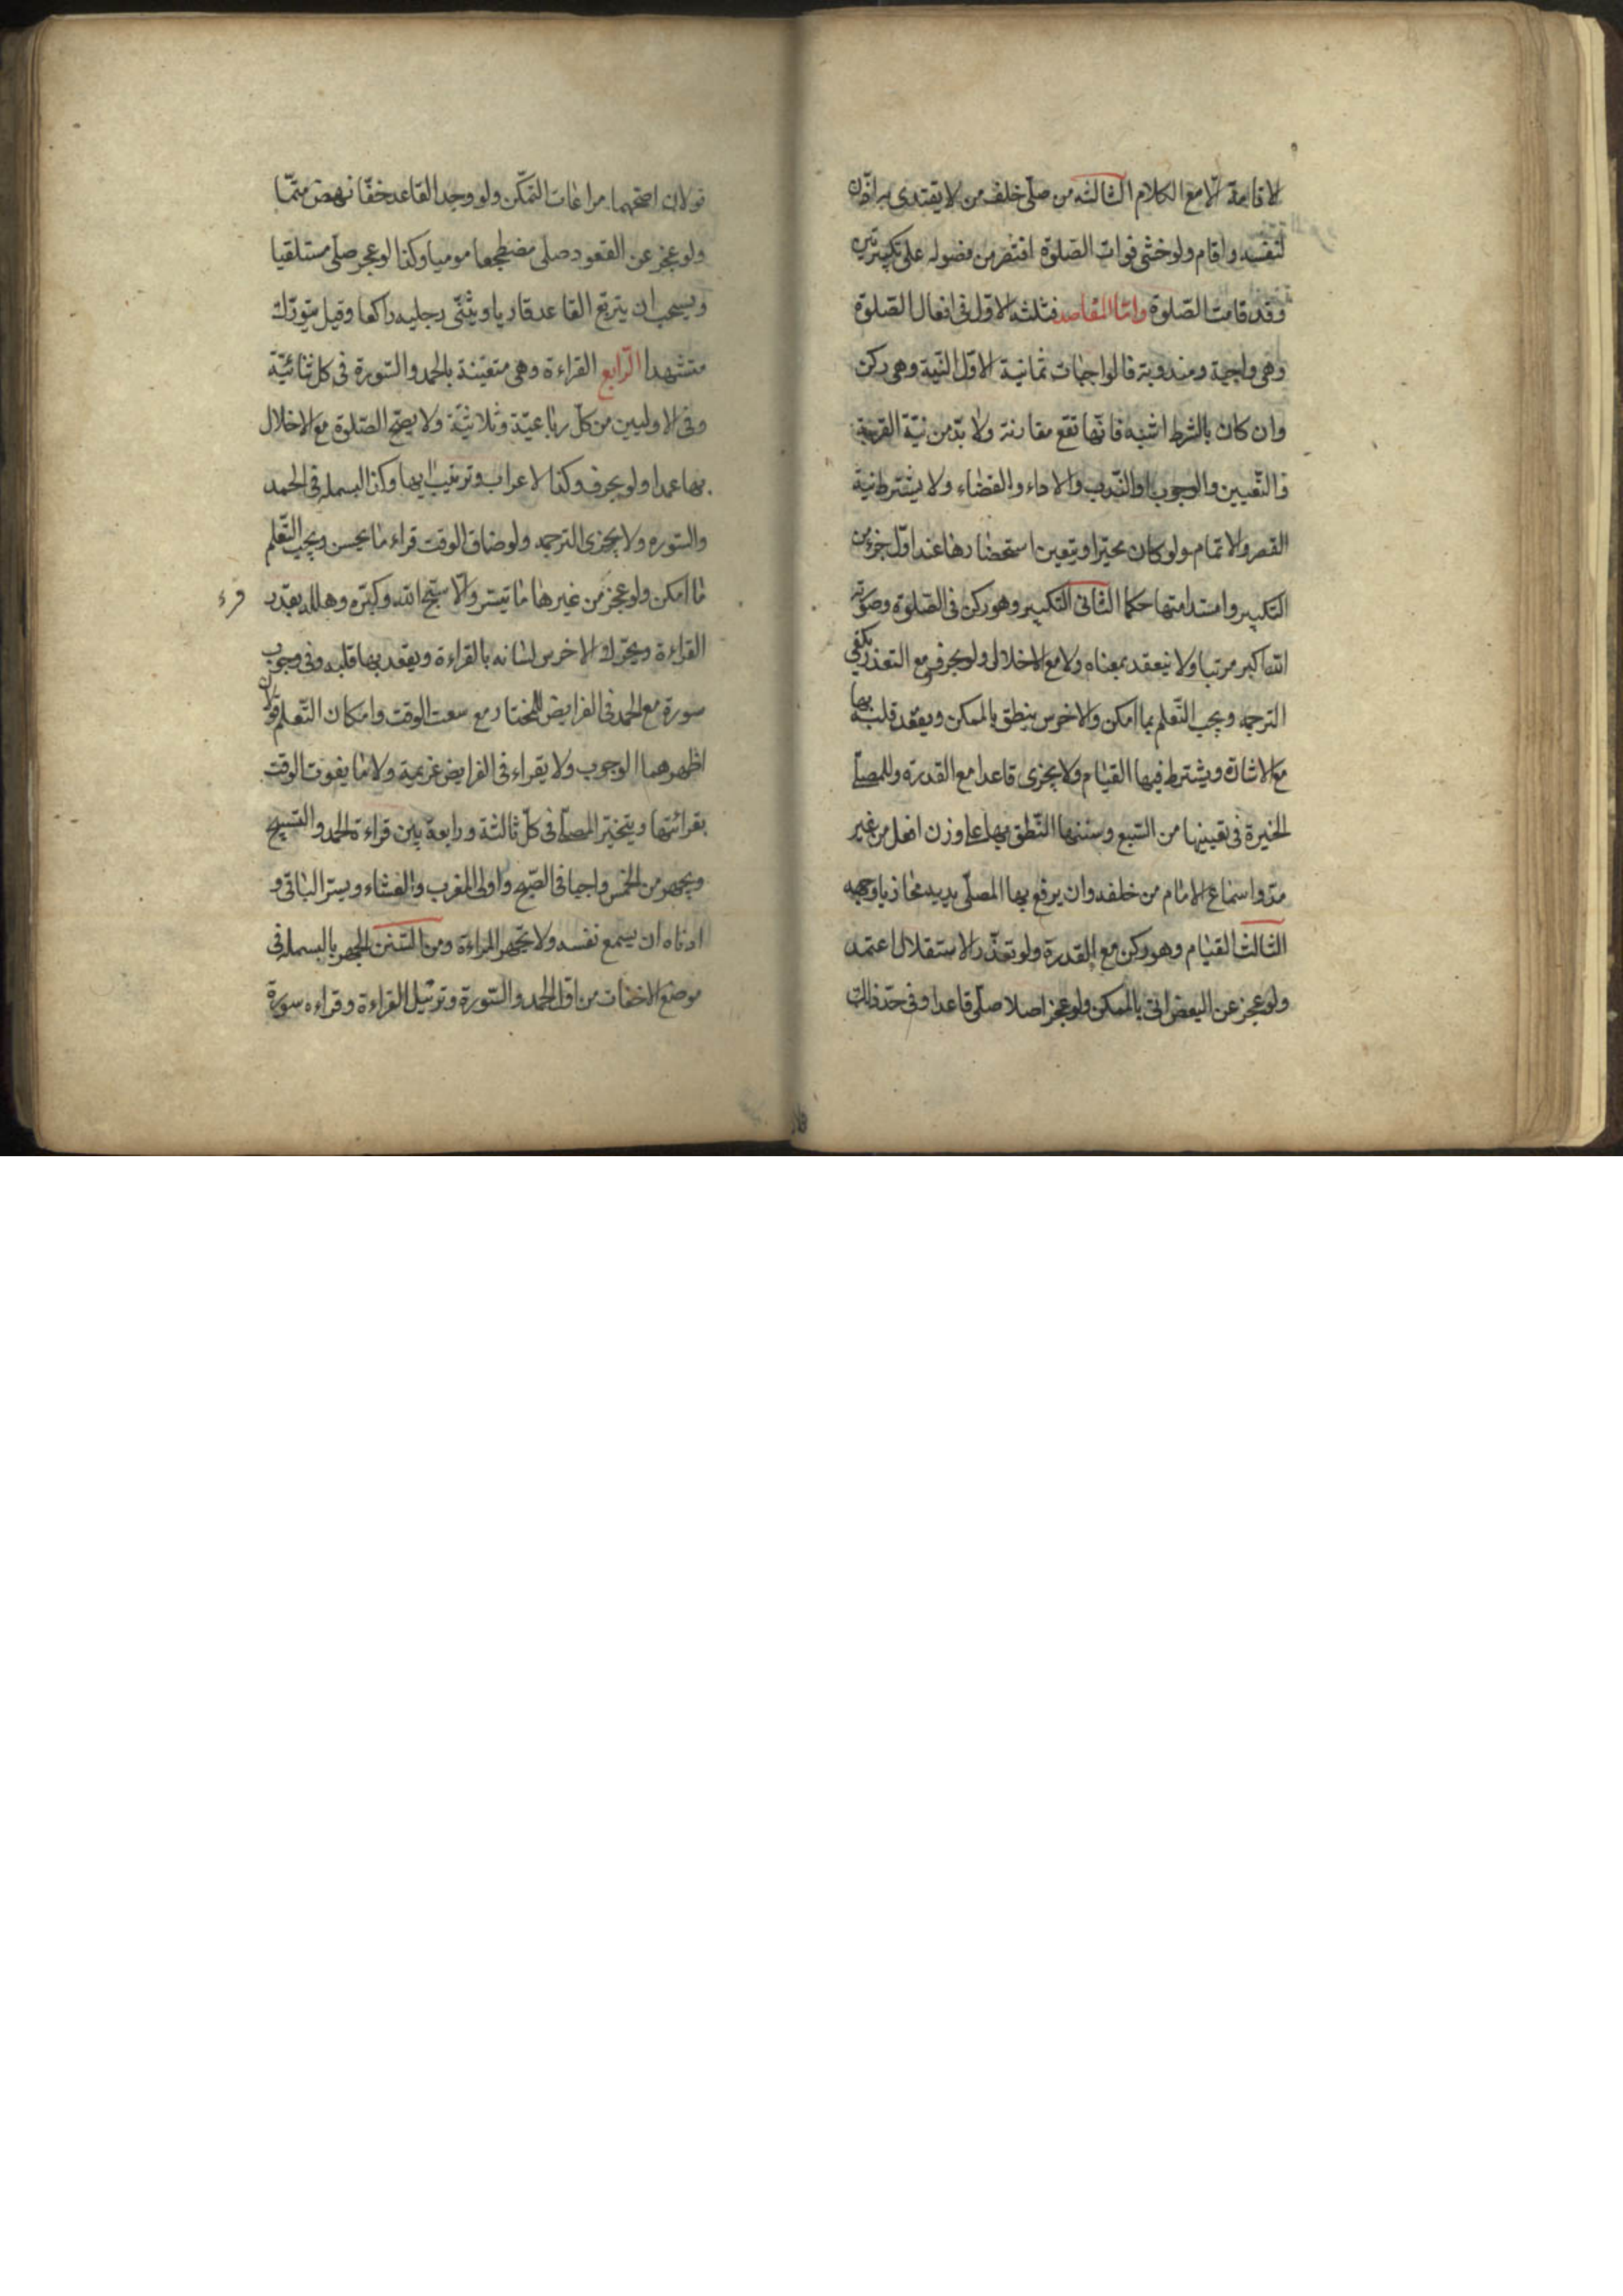 لاقامة الّا مع الكلام الثالثه من صلّى خلف من لا يقتدى به اذّن
لنفسه واقام ولو خشى فوات الصّلوة اقتصر من فصوله على تكبيرتين
وقد قامت الصّلوة وامّا المقاصد فثلثه الاوّل فى افعال الصّلوة
وهى واجبة ومندوبة فالواجبات ثمانية الاوّل النّية وهى ركن
وان كان بالشرط اشبه فانّها تقع مقارنة ولا بدّ من نيّة القربة
والتّعيين والوجوب او النّدب والاداء والقضاء ولا يشترط نية
القصر والاتمام ولو كان مخيّرا ويتعين استحضارها عند اوّل جزء من
التكبير واستدامتها حكما الثّانى التكبير وهو ركن فى الصّلوة وصورته
الله اكبر مرتبا ولا ينعقد بمعناه ولا مع الاخلال ولو بحرف ومع التعذر يكفى
الترجمه ويجب التّعلم بما امكن والاخرس ينطق بالممكن ويعقد قلبه بها
مع الاشارة ويشترط فيها القيام ولا يجزى قاعدا مع القدرة وللمصلّى
الخيرة فى تعيينها من السّبع وسننها النّطق بها على وزن افعل من غير
مدّ واسماع الامام من خلفه وان يرفع بها المصلّى يديه محاذيا وجهه
الثالث القيام وهو ركن مع القدرة ولو تعذّر الاستقلال اعتمد
ولو عجز عن البعض اتى بالممكن ولو عجز اصلا صلّى قاعدا وفى حدّ ذلك
قولان اصحّهما مراعات التمكّن ولو وجد القاعد خفّا نهض متمّا
ولو عجز عن القعود صلى مضطجعا موميا وكذا لو عجز صلّى مستلقيا
ويستحب ان يتربّع القاعد قاريا ويثنّى رجليه راكعا وقيل متورّك
متشهدا الرّابع القراءة وهى متعيّنة بالحمد والسّورة فى كل ثنائيّة
وفى الاوليين من كلّ رباعيّة وثلاثيّة ولا يصحّ الصّلوة مع الاخلال
بها عمدا ولو بحرف وكذا الاعراب وترتيب ايها وكذا البسمله فى الحمد
والسّوره ولا يجزى الترجمه ولو ضاق الوقت قراء ما يحسن ويجب التّعلم
ما امكن ولو عجز من غيرها ما تيسّر والّا سبّح الله وكبّره وهلله بقدر
قرء
القراءة ويحرّك الاخرس لسانه بالقراءة ويعقد بها قلبه وفى وجوب
سورة مع الحمد فى الفرايض للمختار مع سعت الوقت وامكان التّعلم قولان
اظهرهما الوجوب ولا يقراء فى الفرايض عزيمة ولا ما يفوت الوقت
بقرائتها ويتخيّر المصلّى فى كلّ ثالثة ورابعة بين قراءة الحمد والتّسبيح
ويجهر من الخمس واجبا فى الصّبح واولى المغرب والعشاء ويسرّ الباقى و
ادناه ان يسمع نفسه ولا تجهر المراءة ومن السّنن الجهر بالبسمله فى
موضع الاخفات من اوّل الحمد والسّورة وترتيل القراءة وقراءه سورة